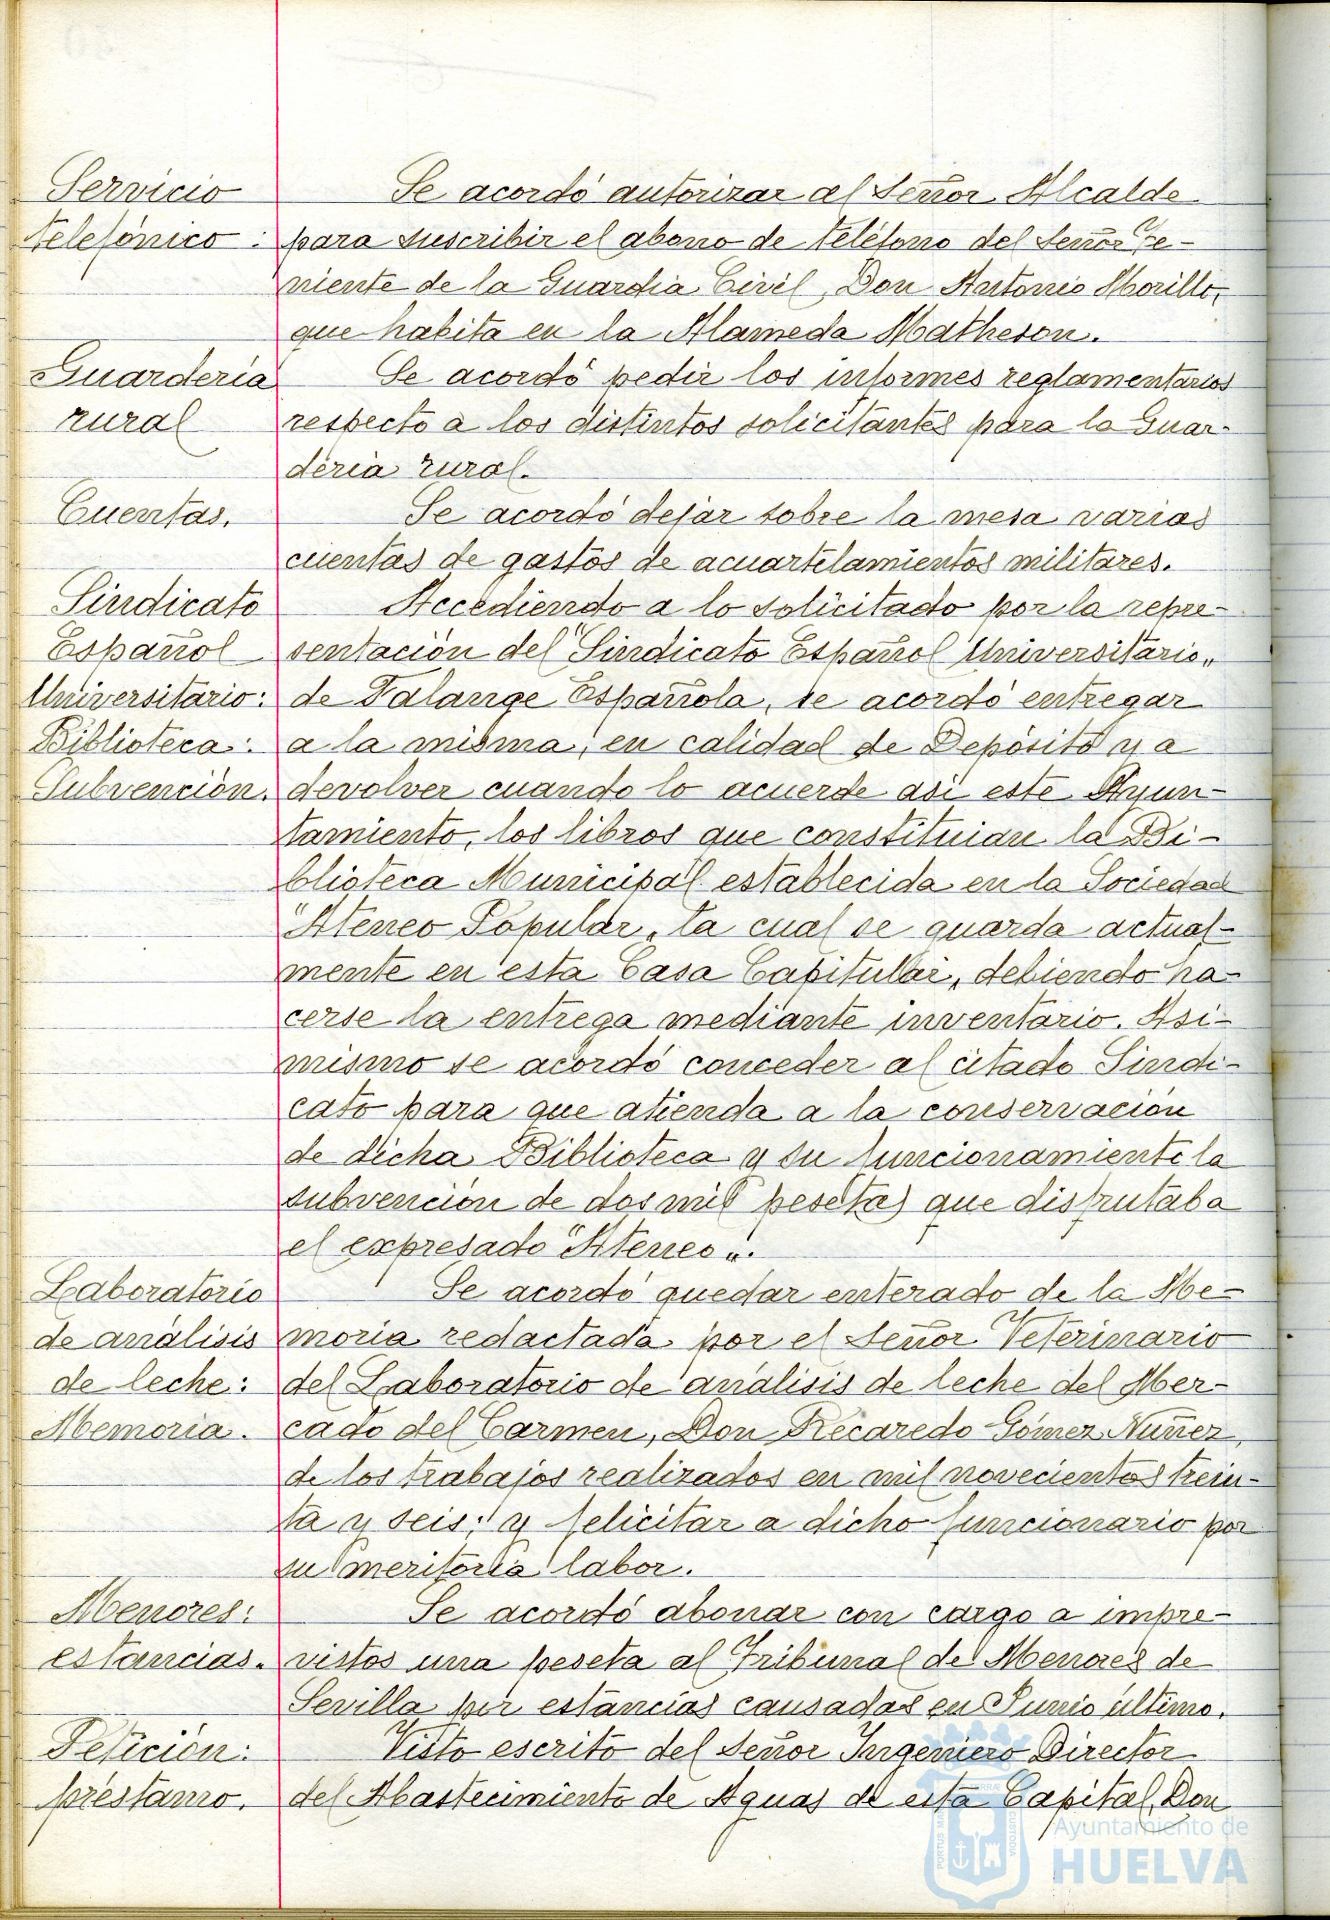 Servicio
telefónico:
Se acordó autorizar al señor Alcalde
para suscribir el abono de teléfono del señor Te-
niente de la Guardia Civil, Don Antonio Morillo,
que habita en la Alameda Matheson.
Guardería
rural
Se acordó pedir los informes reglamentarios
respecto a los distintos solicitantes para la Guar-
dería rural.
Cuentas.
Se acordó dejar sobre la mesa varias
cuentas de gastos de acuartelamientos militares.
Sindicato
Español
Universitario:
Biblioteca:
Subvención.
Accediendo a lo solicitado por la repre-
sentación del "Sindicato Español Universitario"
de Falange Española, se acordó entregar
a la misma, en calidad de Depósito y a
devolver cuando lo acuerde asi este Ayun-
tamiento, los libros que constituian la Bi-
blioteca Municipal establecida en la Sociedad
"Ateneo Popular", la cual se guarda actual-
mente en esta Casa Capitular, debiendo ha-
cerse la entrega mediante inventario. Asi-
mismo se acordó conceder al citado Sindi-
cato para que atienda a la conservación
de dicha Biblioteca y su funcionamiento la
subvención de dos mil pesetas que disfrutaba
el expresado "Ateneo".
Laboratorio
de análisis
de leche:
Memoria.
Se acordó quedar enterado de la Me-
moria redactada por el señor Veterinario
del Laboratorio de análisis de leche del Mer-
cado del Carmen, Don Recaredo Gómez Nuñez,
de los trabajos realizados en mil novecientos trein-
ta y seis; y felicitar a dicho funcionario por
su meritoria labor.
Menores:
estancias.
Se acordó abonar con cargo a impre-
vistos una peseta al Tribunal de Menores de
Sevilla por estancias causadas en Junio último.
Petición:
préstamo.
Visto escrito del señor Ingeniero Director
del Abastecimiento de Aguas de esta Capital, Don
Ayuntamiento de
HUELVA